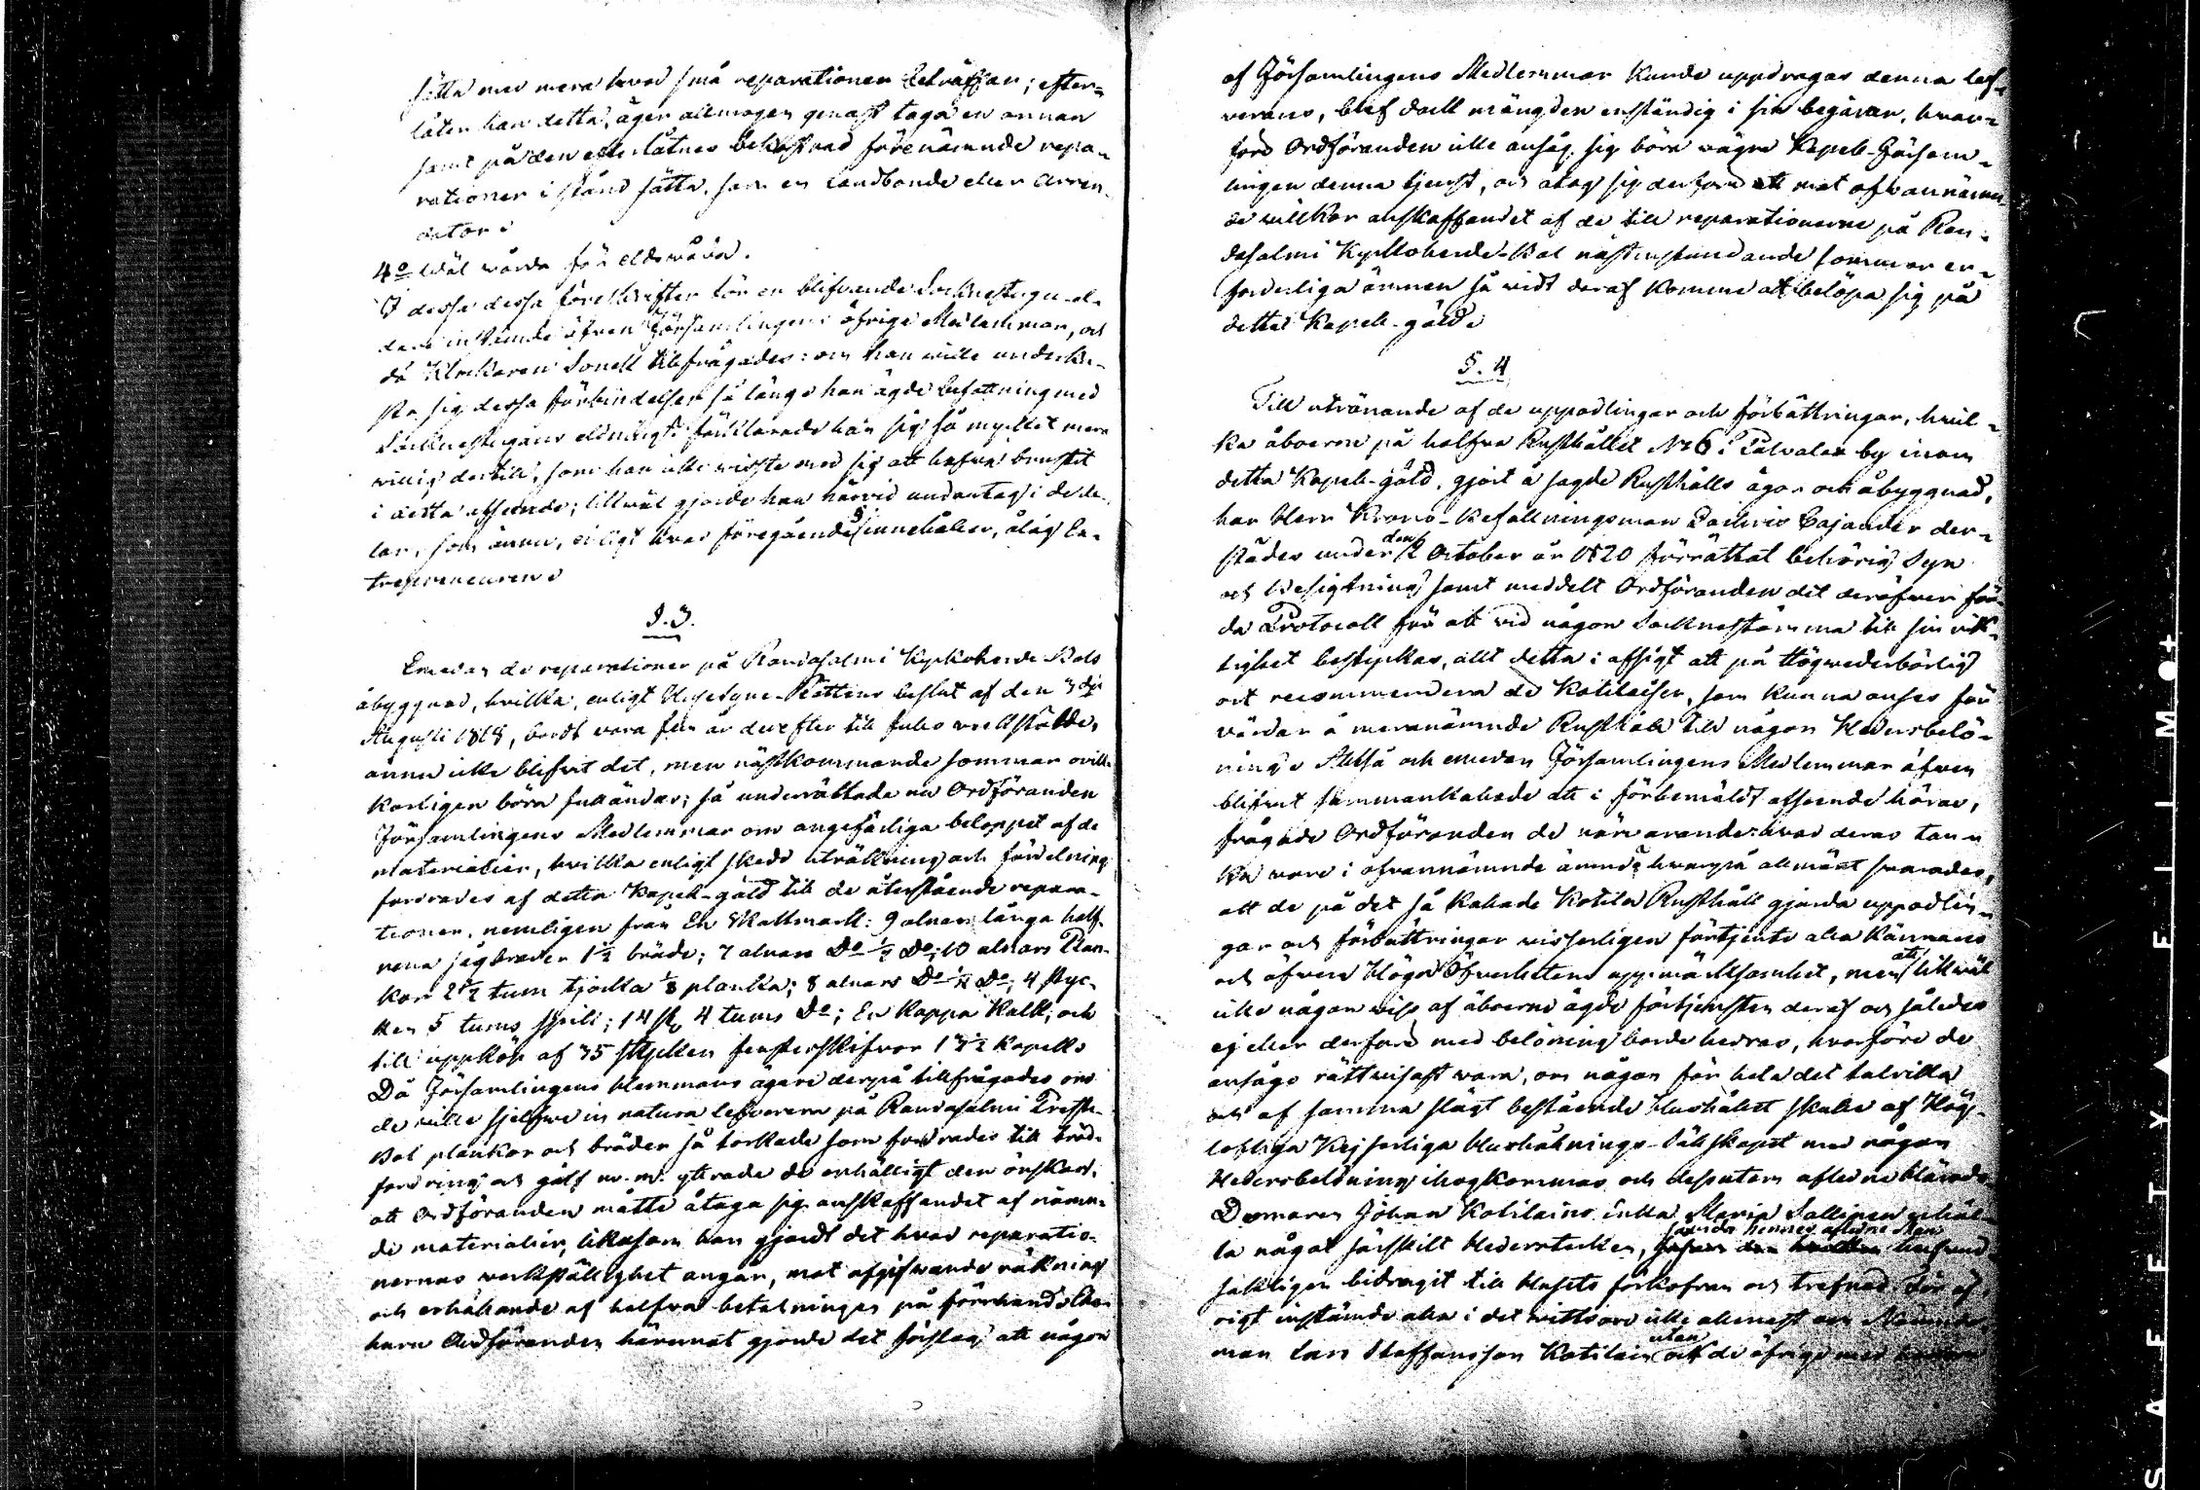 sätta med mera hvad små reparationer beträffar; efter-
låter han detta, äger allmogen genast taga en annan
samt på den efterlåtnes bekostnad förenämnde repa-
rationer i stånd sätta, som en Landbonde eller Arren-
dator.
4o Wäl vårda för eldsvåda.
I dessa föreskrifter
instämde äfven Församlingens öfrige Medlemmar, och
då Klockaren Sonell tillfrågades: om han wille underka-
sta sig dessa förbindelser så länge han ägde befattning med
Socknestugans eldning? förklarade han sig så mycket mera
willig dertill, som han icke wisste med sig att hafva brustit
i detta afseende; likwäl gjorde han härvid undantag i de de-
lar, som ännu, enligt hvad föregående § innehåller, ålåg En-
trepreneuren.
§. 3.
Emedan de reparationer på Randasalmi Kyrkoherde-Bols
åbyggnad, hvilka, enligt Husesyns-Rättens beslut af den 3dje
Augusti 1818, bordt vara fem år derefter till fullo verkställde,
ännu icke blifvit det, men nästkommande sommar ovill-
korligen böra fulländas; så underrättade nu Ordföranden
Församlingens Medlemmar om ungefärliga beloppet af de
materialier, hvilka enligt skedd uträkning och fördelning
fordrades af detta Kapell-gäld till de återstående repara-
tioner, nemligen från En Skattmark: 9 alnars långa half-
rena sågbräder 1 1/2 bräde; 7 alnars Do 1/2 Do; 10 alnars Plan-
kor 2 1/2 tum tjocka 1/8 planka; 8 alnars Do Do; 4 styc-
ken 5 tums spik; 14 st. 4 tums Do; En kappa Kalk; och
till uppköp af 35 stycken fensterskifvor kopek.
Då Församlingens Hemmans ägare derpå tillfrågades om
de wille sjelfve in natura lefverera på Randasalmi Preste-
Bol plankor och bräder så torkade som fordrades till bräd-
fordring och golf m. m. yttrade de enhälligt den önskan,
att Ordföranden måtte åtaga sig anskaffandet af nämn-
de materialier, likasom han gjordt det hvad reparatio-
nernas verkställighet angår, mot afgifwande räkning
och erhållande af halfva betalningen på förehand.
Ordföranden häremot gjorde det förslag att någon
af Församlingens Medlemmar kunde uppdragas denna lef-
verans, blef dock mängden enständig i sin begäran, hvar-
före Ordföranden icke ansåg sig böra vägra Kapell-Försam-
lingen denna tjenst, och åtog sig derföre att mot ofvannämn-
de willkor anskaffandet af de till reparationerne på Ran-
dasalmi Kyrkoherde-Bol nästinstundande sommar er-
forderliga ämnen så vidt deraf komme att belöpa sig på
detta Kapell-gäld.
§. 4
Till utrönande af de uppodlingar och förbättringar, hvil-
ka åboerne på halfva Rusthållet No 6 i Putvala by inom
detta Kapell-gäld, gjort å sagde Rusthålls ägor och åbyggnad,
har Herr Krono-Befallningsman Cajander der-
städes under den October år 1820 förrättat behörig Syn
och Besigtning samt meddelt Ordföranden det deröfver för-
da Protocoll för att vid någon Socknestämma till sin rik-
tighet bestyrkas, allt detta i afsigt att på Högvederbörlig
ort recommendera de Kotilaiser, som kunna anses för
värdar å meranämnde Rusthåll till någon Hedersbelö-
ning. Altså och emedan Församlingens Medlemmar äfven
blifvit sammankallade att i förbemäldt afseende höras,
frågade Ordföranden de närvarande: hvad deras tan-
ka vore i ofvannämnde ämne? hvarpå allmänt svarades,
att de på det så kallade Kotila Rusthåll gjorda uppodlin-
gar och förbättringar visserligen förtjente alla Kännares
och äfven Höga Öfverhetens uppmärksamhet, men att likwäl
icke någon viss af åboerne ägde förtjensten deraf och således
ej eller derföre med belöning borde hedras, hvarföre de
ansågo rättvisast vara, om någon för hela det talrika
och af samma slägt bestående Hushållet skulle af Höglofliga
Kejserliga Hushållnings-Sällskapet med någon
Hedersbelöning ihogkommas och dessutom aflidne Härads
Domaren Johan Kotilains Enka Maria Sallinen erhål-
la något särskilt Hederstecken, sedan hennes aflidne Man hufvud-
sakligen bidragit till Husets förkofran och trefnad. För öf-
rigt instämde alla i det vittsord icke allenast
man Lars Staffansson Kotilain utan och de öfrige med